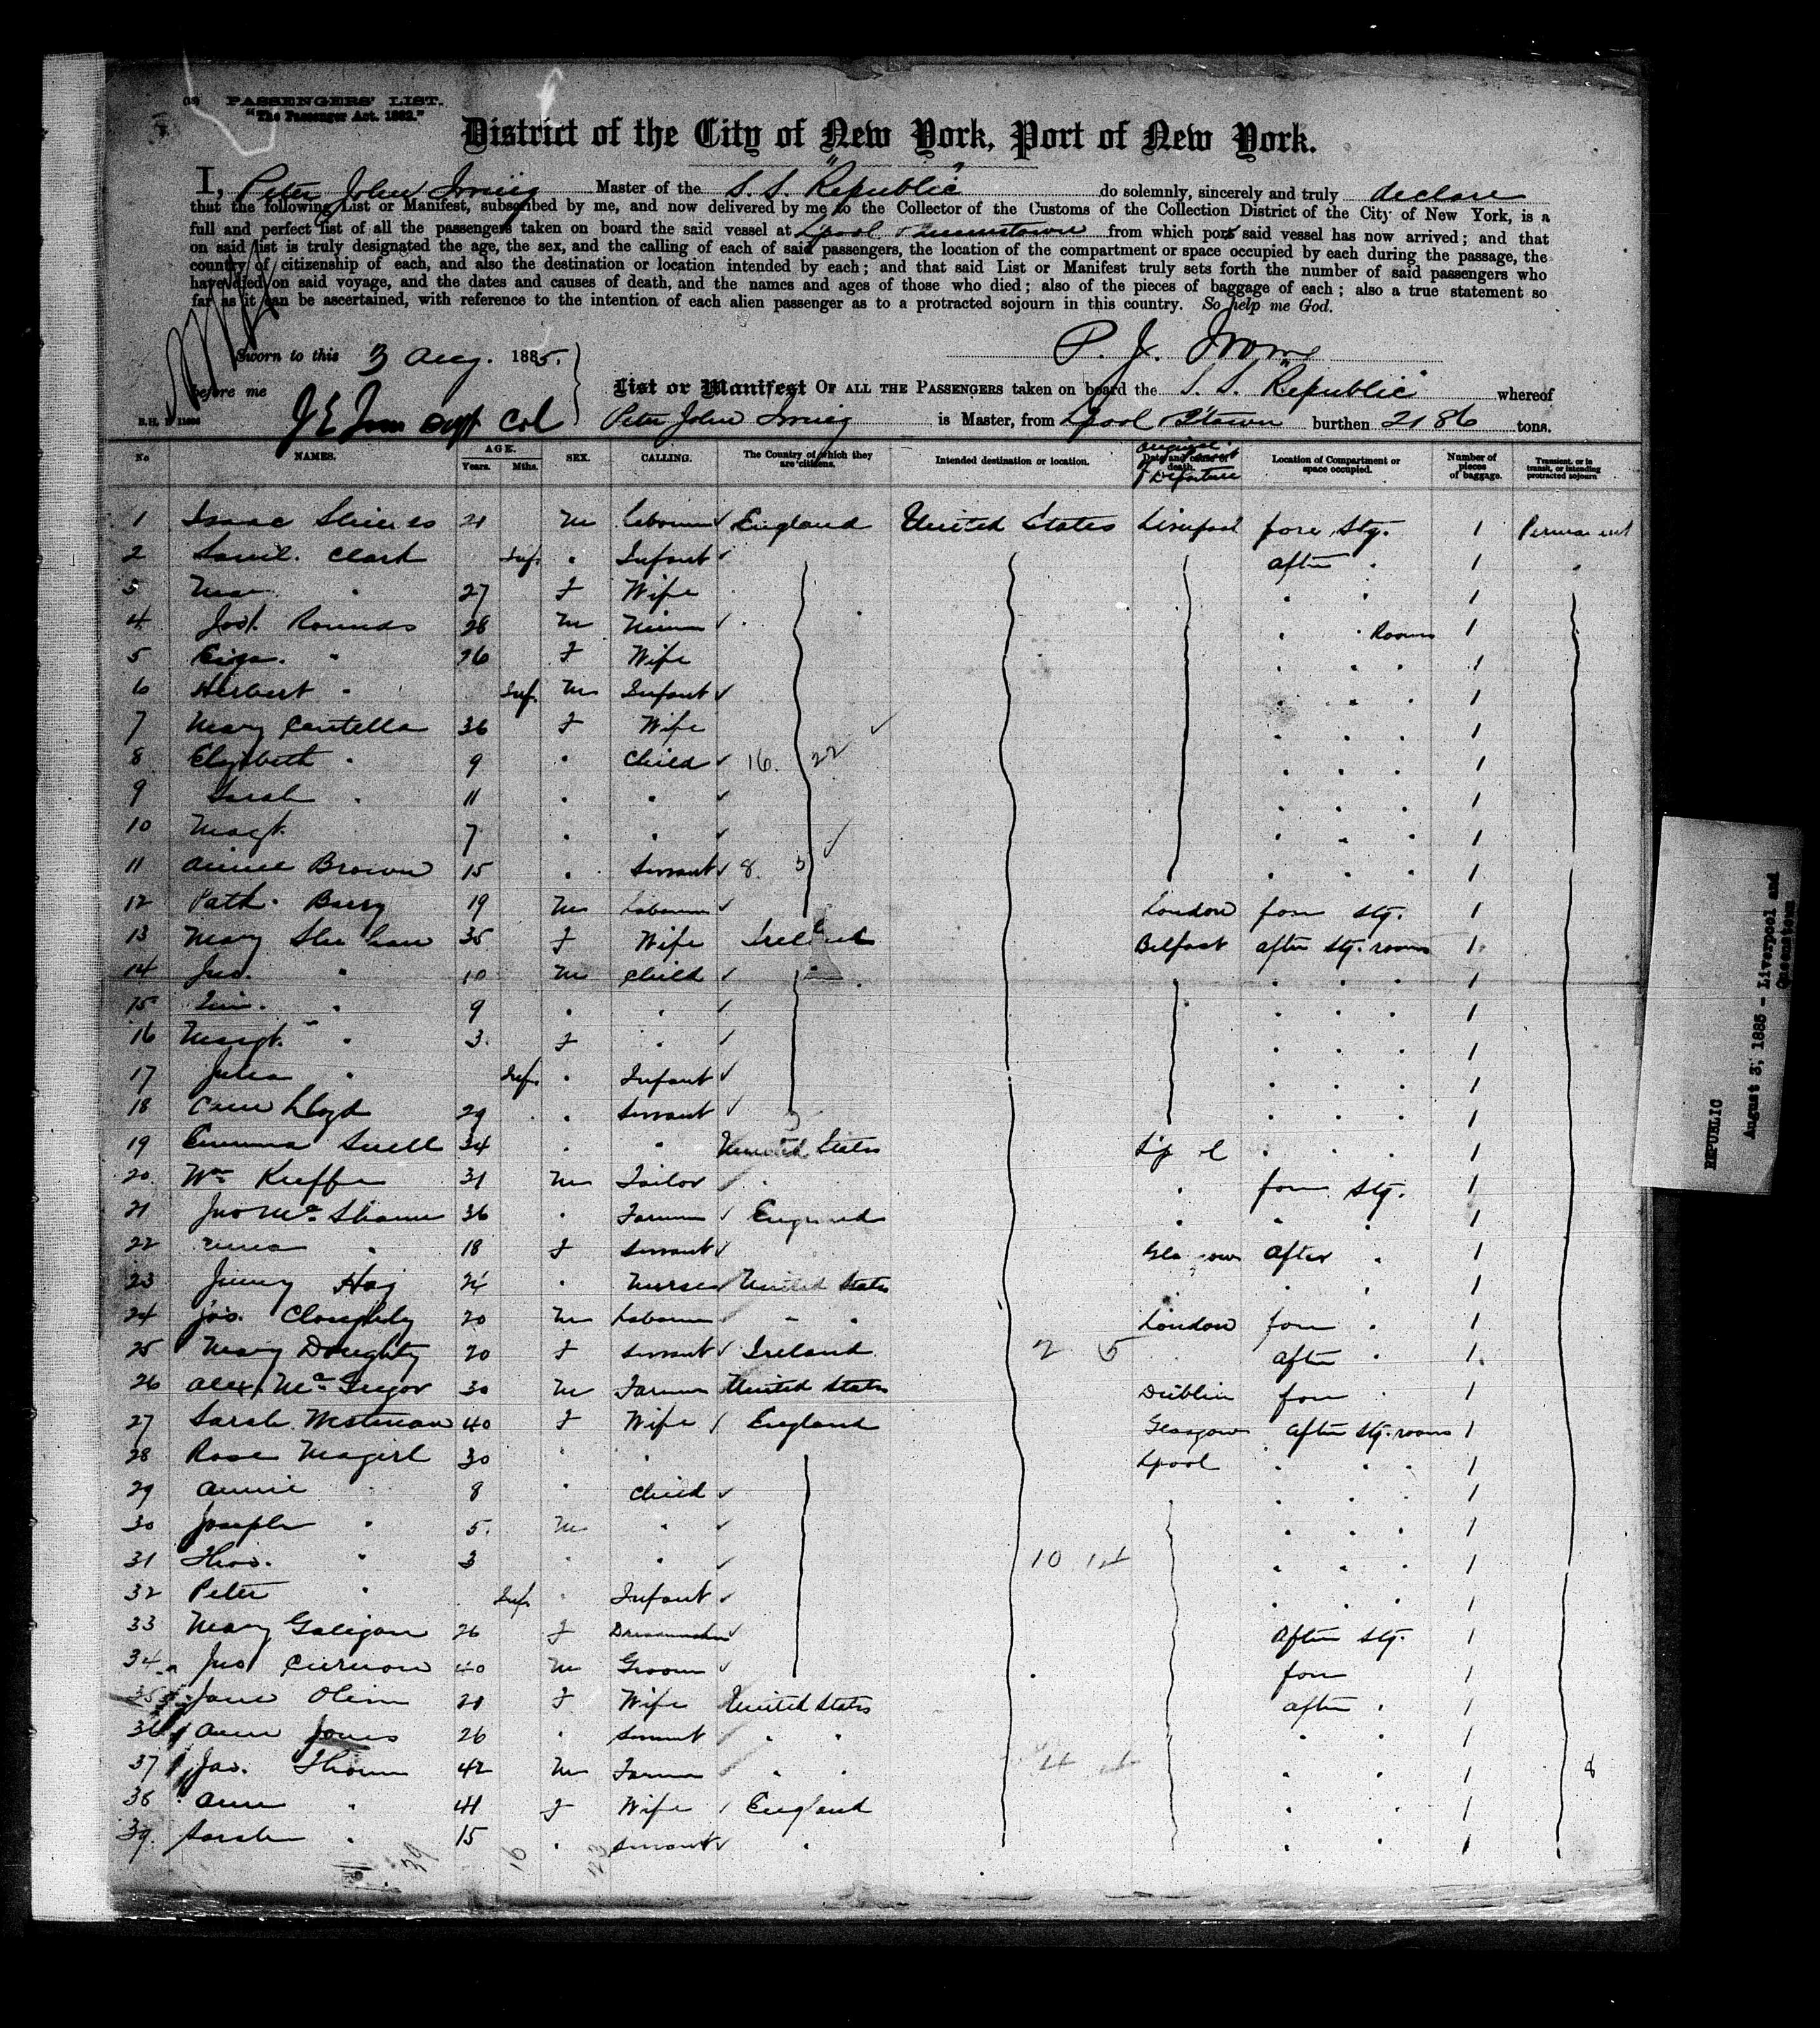 PASSENGERS' LIST.
"The Passenger Act, 1882."
District of the City of New York, Port of New York.
I, Peter John Irving Master of the S. S. "Republic" do solemnly, sincerely and truly declare
that the following List or Manifest, subscribed by me, and now delivered by me to the Collector of the Customs of the Collection District of the City of New York, is a
full and perfect list of all the passengers taken on board the said vessel at L'pool & Queenstown from which port said vessel has now arrived; and that
on said list is truly designated the age, the sex, and the calling of each of said passengers, the location of the compartment or space occupied by each during the passage, the
country of citizenship of each, and also the destination or location intended by each; and that said List or Manifest truly sets forth the number of said passengers who
have died on said voyage, and the dates and causes of death, and the names and ages of those who died; also of the pieces of baggage of each; also a true statement so
far as it can be ascertained, with reference to the intention of each alien passenger as to a protracted sojourn in this country. So help me God.
Sworn to this 3 Aug. 1885.
P. J. Irving
before me
List or Manifest OF ALL THE PASSENGERS taken on board the S. S. "Republic" whereof
Peter John Irving is Master, from L'pool & Q'town burthen 2186 tons.
No NAMES. AGE. Years. Mths. SEX. CALLING. The Country of which they are citizens. Intended destination or location. Original Date and cause of death. Departure Location of Compartment or space occupied. Number of pieces of baggage. Transient, or in transit, or intending protracted sojourn
1 Isaac 21 M Labourer England United States Liverpool fore Stg. 1 Permanent
2 Saml. Clark Inf. " Infant after " 1 "
3 " 27 F Wife " " 1
4 Rounds 28 M " " Rooms 1
5 Eliza. " 26 F Wife " " " 1
6 Herbert " Inf. M Infant " " " 1
7 Mary Cantella 36 F Wife " " " 1
8 Elizabeth " 9 " Child 16. 22 " " " 1
9 Sarah " 11 " " " " " 1
10 Magt. 7 " " " " " 1
11 Annie Brown 15 " Servant 8. 5 " " " 1
12 Patk. Barry 19 M Labourer London fore Stg. 1
13 Mary Sheehan 35 F Wife Ireland Belfast after Stg. rooms 1
14 Jno. " 10 M Child " " " 1
15 " 9 " " " " " 1
16 Margt. " 3 F " " " " 1
17 Julia " Inf. " Infant " " " 1
18 Lloyd 29 " Servant " " " 1
19 Emma Snell 34 " " United States L'pool " " " 1
20 Wm Kieffe 31 M Tailor " " fore Stg. 1
21 Jno Mc Shane 36 " Farmer England " " " 1
22 " 18 F Servant Glasgow after " 1
23 Jenny Hay 24 " Nurse United States " " 1
24 Jos. Cloughly 20 M Labourer " " London fore " 1
25 Mary Doughty 20 F Servant Ireland 2 5 " after " 1
26 Alex. McGregor 30 M Farmer United States Dublin fore " 1
27 Sarah Westman 40 F Wife England Glasgow after Stg. rooms 1
28 Rose Magirl 30 " " L'pool " " " 1
29 Annie " 8 " Child " " " 1
30 Joseph " 5 M " " " " 1
31 Thos. " 3 " " 10 " " " 1
32 Peter " Inf. " Infant " " " 1
33 Mary Galigan 26 F Dressmaker after Stg. 1
34 Jno 40 M Groom fore 1
35 Jane 21 F Wife United States after " 1
36 Ann Jones 26 " Servant " " " " 1
37 Jas. 42 M Farmer " " " " 1 8
38 Ann " 41 F Wife England " " 1
39. Sarah " 15 " Servant " " " 1
REPUBLIC
August 3, 1885 - Liverpool and
Queenstown